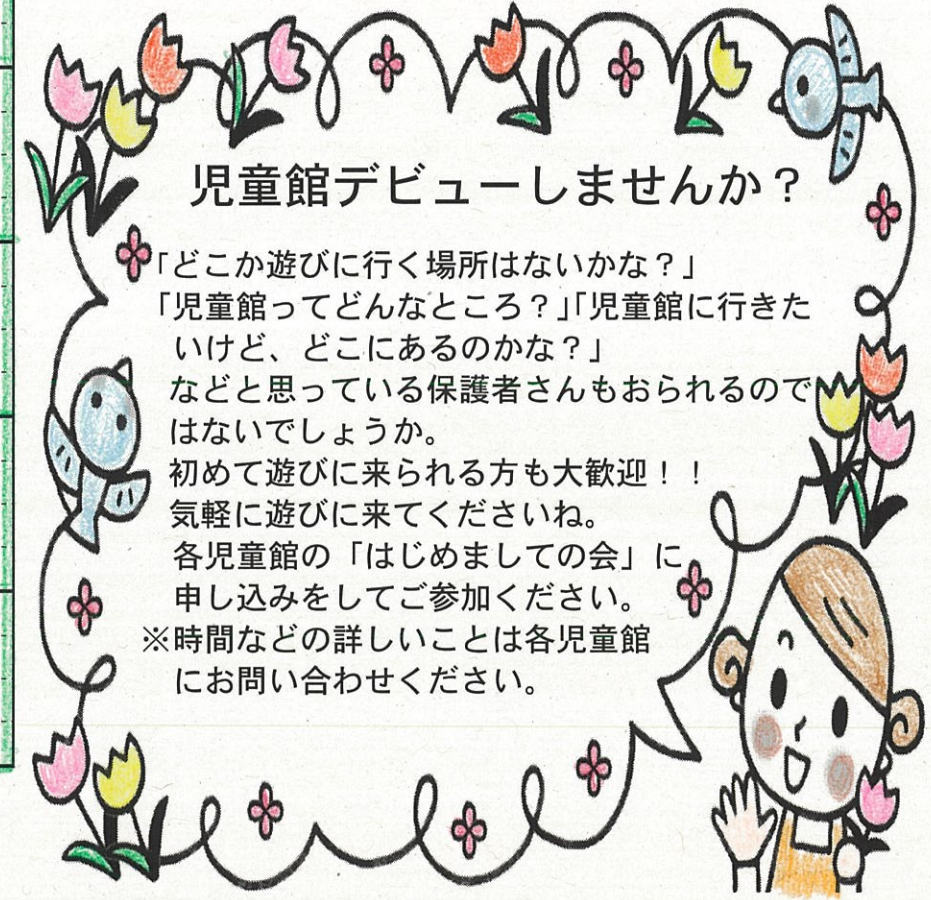 児童館デビューしませんか？
「どこか遊びに行く場所はないかな？」
「児童館ってどんなところ？」「児童館に行きた
いけど、どこにあるのかな？」
などと思っている保護者さんもおられるので
はないでしょうか。
初めて遊びに来られる方も大歓迎！！
気軽に遊びに来てくださいね。
各児童館の「はじめましての会」に
申し込みをしてご参加ください。
※時間などの詳しいことは各児童館
にお問い合わせください。